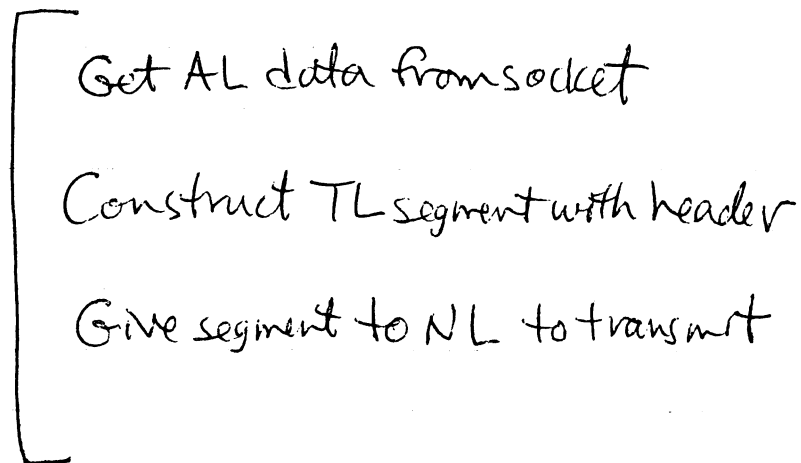 Get AL data from socket
Construct TL segment with header
Give segment to NL to transmit